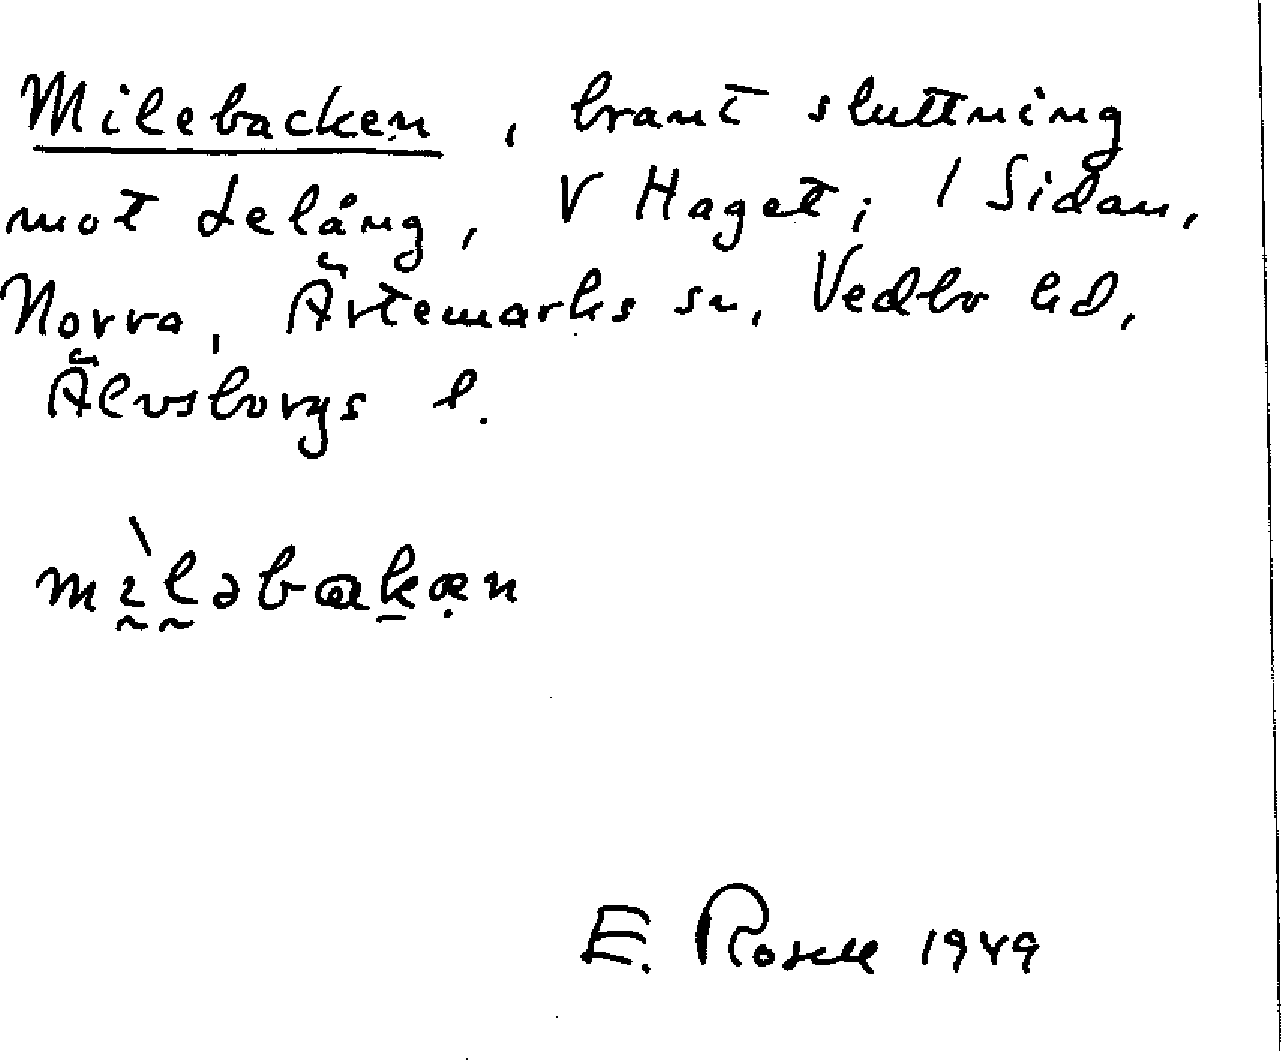 Milebacken, brant sluttning
mot Lelång, V Haget; 1 Sidan,
Norra, Ärtemarks sn, Vedbo hd,
Älvsborgs l.
mìləbakən
E. Rosell 1949